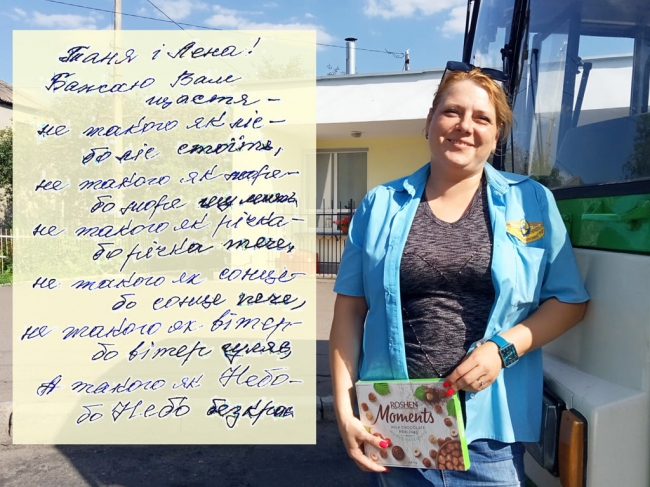 Таня і Лена!
Бажаю Вам
щастя -
не такого як ліс -
бо ліс стоїть,
не такого як море -
бо море
не такого як річка -
бо річка тече,
не такого як сонце -
бо сонце пече,
не такого як вітер -
бо вітер гуляє,
А такого як Небо -
бо Небо безкрає
ROSHEN
Moments
MILK CHOCOLATE
PRALINES